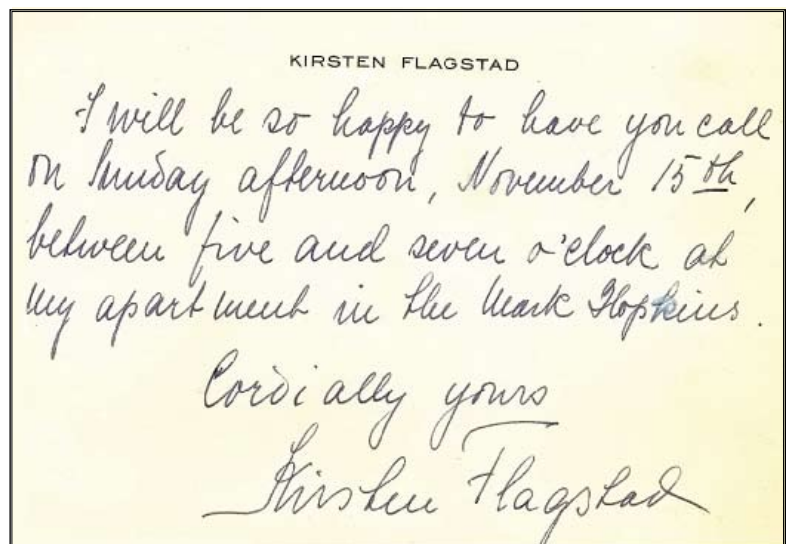 KIRSTEN FLAGSTAD
I will be so happy to have you call
on Sunday afternoon, November 15th,
between five and seven o'clock at
my apartment in the Mark Hopkins.
Cordially yours
Kirsten Flagstad